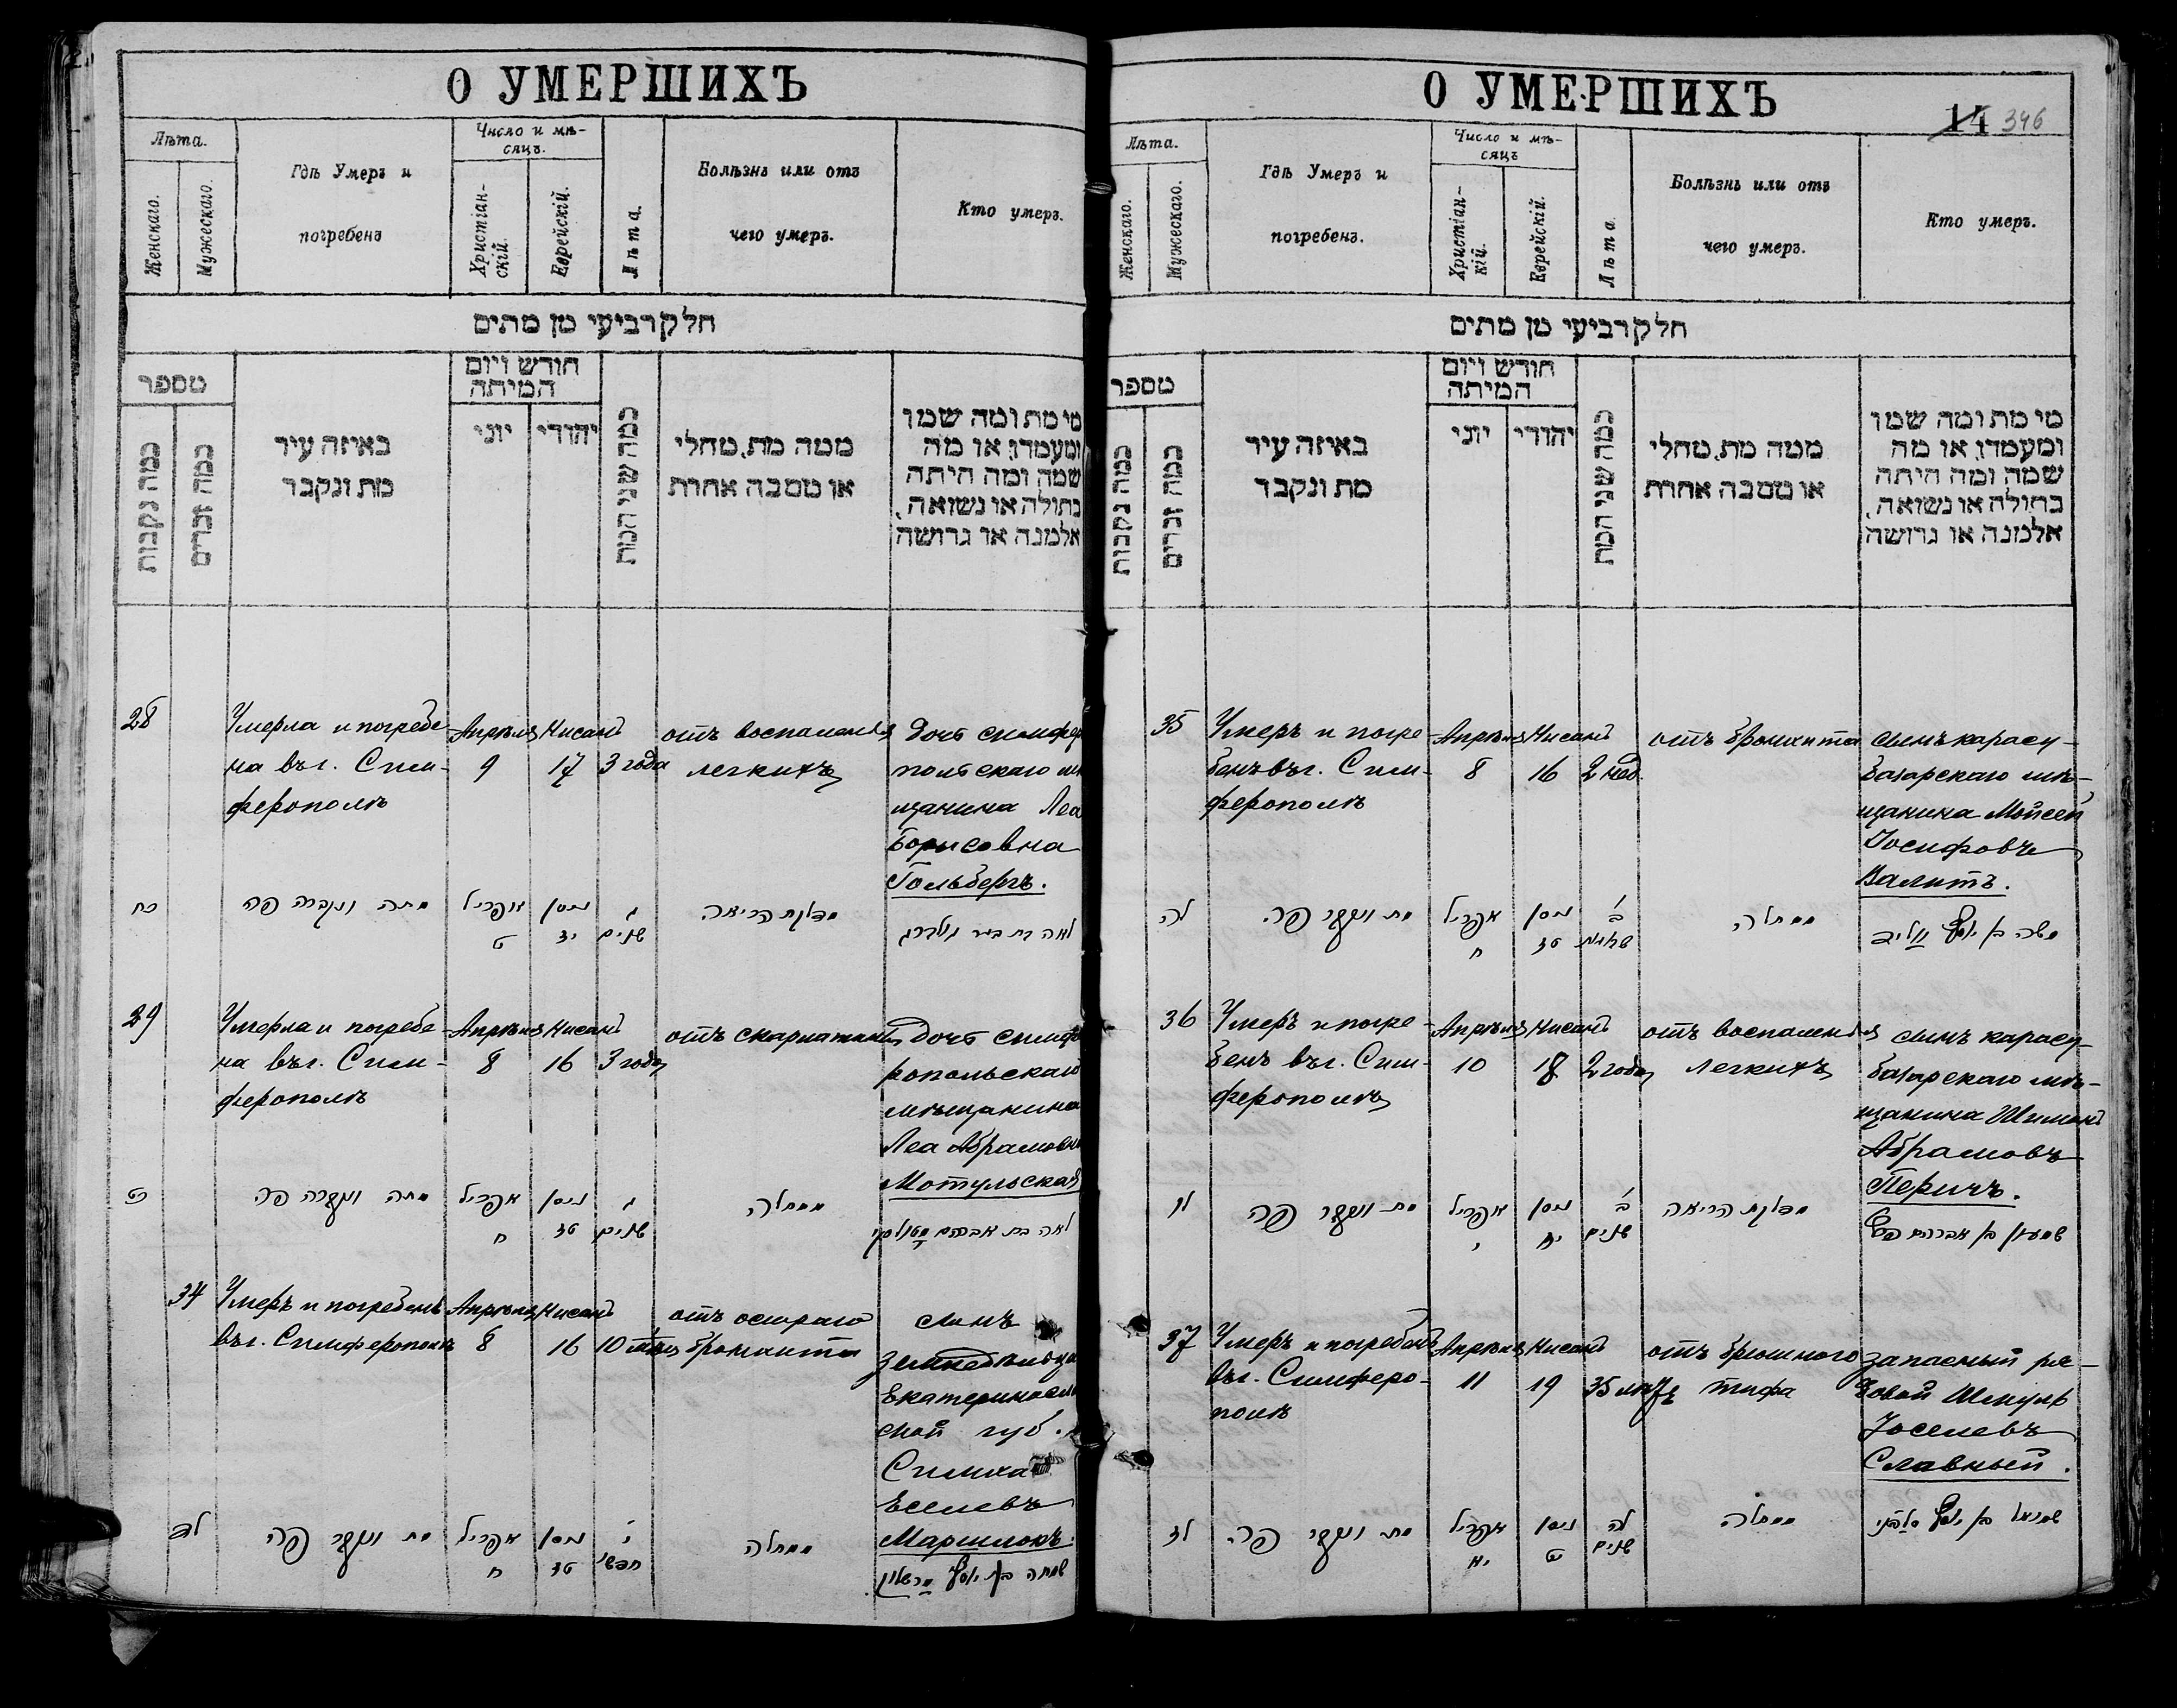 О УМЕРШИХЪ
Лѣта.
Женскаго.
Мужескаго.
Гдѣ Умеръ и
погребенъ
Число и мѣ-
сяцъ.
Христіан-
скій.
Еврейскій.
Лѣта.
Болѣзнь или отъ
чего умеръ.
Кто умеръ.
חלק רביעי מן מתים
מספר
כמה נקבות
כמה זכרים
באיזה עיר
מת ונקבר
חודש ויום
המיתה
יוני
יהודי
כמה שני המת
ממה מת, מחלי
או מסבה אחרת
מי מת ומה שמו
ומעמדו, או מה
שמה ומה היתה
בתולה או נשואה,
אלמנה או גרושה
28
Умерла и погребе-
на въ г. Сим-
ферополѣ
Апрѣля
9
Нисана
17
3 года
отъ воспаленія
легкихъ
дочь симферо
польскаго мѣ
щанина Леа
Борисовна
Гольбергъ.
כח
מתה ונקברה פה
אפריל
ט
ניסן
יז
ג
שנים
מדלקת הריאה
לאה בת
29
Умерла и погребе-
на въ г. Сим-
ферополѣ
Апрѣля
8
Нисана
16
3 года
отъ скарлатины
дочь симфе
ропольскаго
мѣщанина
Леа Абрамовна
Мотульская
כט
מתה ונקברה פה
אפריל
ח
ניסן
טז
ג
שנים
ממחלה
לאה בת אברהם
34
Умеръ и погребенъ
въ г. Симферополѣ
Апрѣля
8
Нисана
16
10 мѣс
отъ остраго
бронхита
сынъ
земледѣльца
Екатеринослав
ской губ.
Симха
Еселевъ
Маршлокъ.
לד
מת ונקבר פה
אפריל
ח
ניסן
טז
י
חדשי
ממחלה
שמחה בן יוסף
О УМЕРШИХЪ
14 346
Лѣта.
Женскаго.
Мужескаго.
Гдѣ Умеръ и
погребенъ.
Число и мѣ-
сяцъ
Христіан-
кій.
Еврейскій.
Лѣта.
Болѣзнь или отъ
чего умеръ.
Кто умеръ.
חלק רביעי מן מתים
מספר
כמה נקבות
כמה זכרים
באיזה עיר
מת ונקבר
חודש ויום
המיתה
יוני
יהודי
כמה שני המת
ממה מת, מחלי
או מסבה אחרת
מי מת ומה שמו
ומעמדו, או מה
שמה ומה היתה
בתולה או נשואה,
אלמנה או גרושה
35
Умеръ и погре-
бенъ въ г. Сим-
ферополѣ
Апрѣля
8
Нисана
16
2 нед.
отъ бронхита
сынъ карасу-
базарскаго мѣ-
щанина Мойсей
Іосифовъ
Валитъ.
לה
מת ונקבר פה
אפריל
ח
ניסן
טז
ב
שבועות
ממחלה
משה בן יוסף
36
Умеръ и погре-
бенъ въ г. Сим-
ферополѣ
Апрѣля
10
Нисана
18
2 года
отъ воспаленія
легкихъ
сынъ карасу-
базарскаго мѣ-
щанина Шимонъ
Абрамовъ
Перичъ.
לו
מת ונקבר פה
אפריל
י
ניסן
יח
ב
שנים
מדלקת הריאה
שמעון בן אברהם
37
Умеръ и погребенъ
въ г. Симферо-
полѣ
Апрѣля
11
Нисана
19
35 лѣтъ
отъ брюшного
тифа
запасный ря-
довой Шмуль
Іоселевъ
Славный.
לז
מת ונקבר פה
אפריל
יא
ניסן
יט
לה
שנים
ממחלה
שמואל בן יוסף